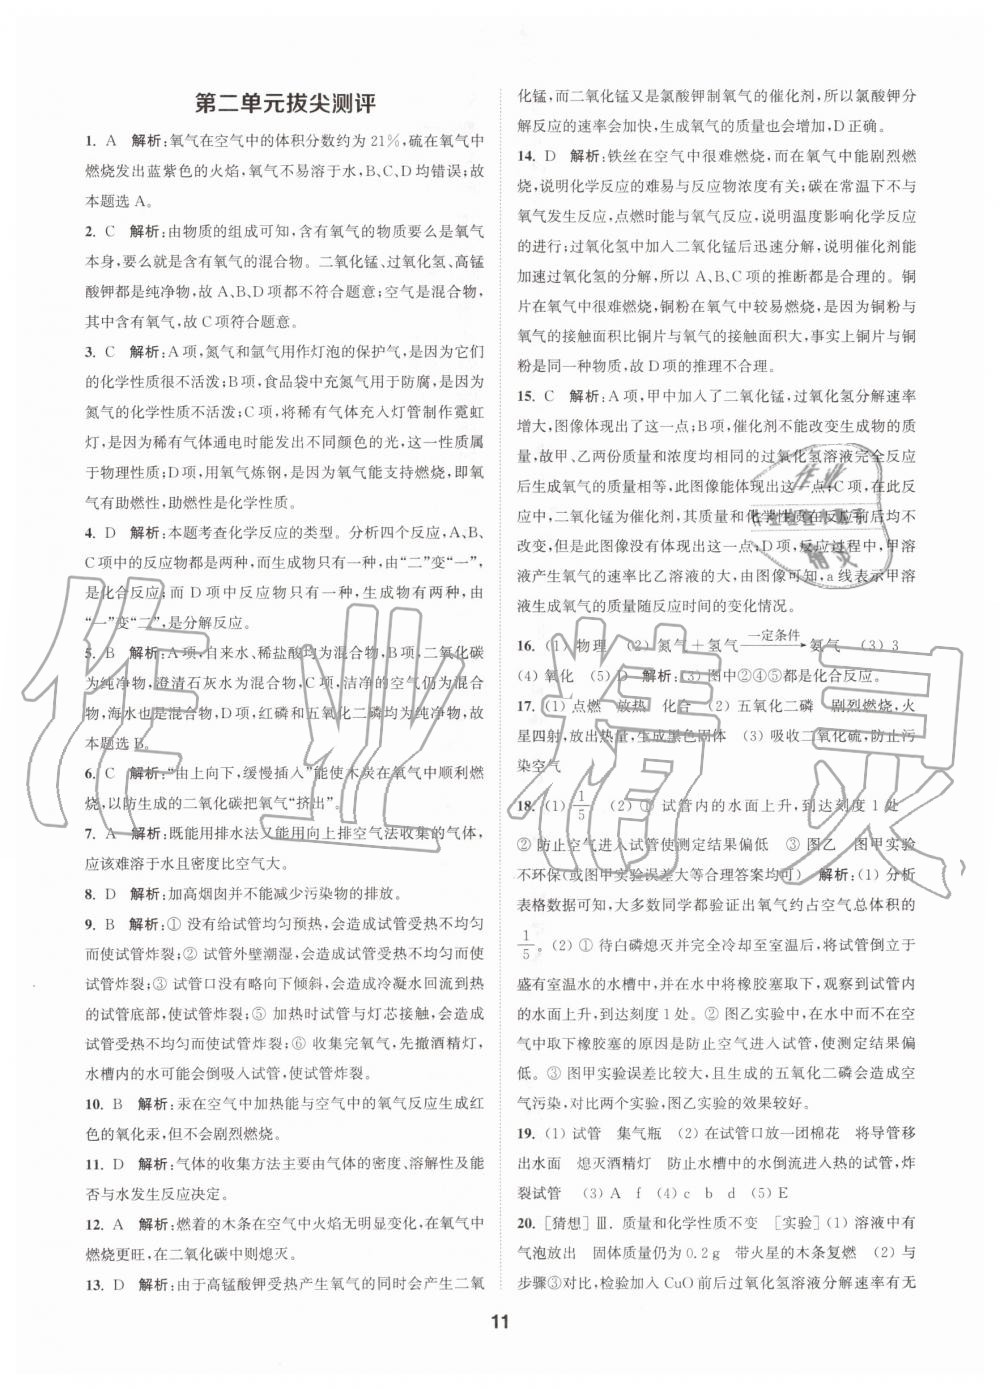 第二单元拔尖测评
1. A 解析:氧气在空气中的体积分数约为 21%,硫在氧气中
燃烧发出蓝紫色的火焰,氧气不易溶于水,B、C、D 均错误;故
本题选 A。
2. C 解析:由物质的组成可知,含有氧气的物质要么是氧气
本身,要么就是氧气的混合物。二氧化锰、过氧化氢、高锰
酸钾都是纯净物,故 A、B、D 项都不符合题意;空气是混合物,
其中含有氧气,故 C 项符合题意。
3. C 解析:A 项,氮气和氩气用作灯泡的保护气,是因为它们
的化学性质很不活泼;B 项,食品袋中充氮气用于防腐,是因为
氮气的化学性质不活泼;C 项,将稀有气体充入灯管制作霓虹
灯,是因为稀有气体通电时能发出不同颜色的光,这一性质属
于物理性质;D 项,用氧气炼钢,是因为氧气能支持燃烧,即氧
气有助燃性,助燃性是化学性质。
4. D 解析:本题考查化学反应的类型。分析四个反应,A、B、
C 项中的反应物都是两种,而生成物只有一种,由“二”变“一”,
是化合反应;而 D 项中反应物有一种,生成物有两种,由
“一”变“二”,是分解反应。
5. B 解析:A 项,自来水、稀盐酸均为混合物,B 项,二氧化碳
为纯净物,澄清石灰水为混合物,C 项,洁净的空气仍为混合
物,海水也是混合物,D 项,红磷和五氧化二磷均为纯净物,故
本题选 B。
6. C 解析:“由上向下,缓慢插入”能使木炭在氧气中顺利燃
烧,以防生成的二氧化碳把氧气“挤出”。
7. A 解析:既能用排水法又能用向上排空气法收集的气体,
应该难溶于水且密度比空气大。
8. D 解析:加高烟囱并不能减少污染物的排放。
9. B 解析:① 没有给试管均匀预热,会造成试管受热不均匀
而使试管炸裂;② 试管外壁潮湿,会造成受热不均匀而使
试管炸裂;③ 试管口没有略向下倾斜,会造成冷凝水回流到热
的试管底部,使试管炸裂;⑤ 加热时试管与灯芯接触,会造成
试管受热不均匀而使试管炸裂;⑥ 收集完氧气,先撤酒精灯,
水槽内的水可能会倒吸入试管,使试管炸裂。
10. B 解析:汞在空气中加热能与空气中的氧气反应生成红
色的氧化汞,但不会剧烈燃烧。
11. D 解析:气体的收集方法主要由气体的密度、溶解性及能
否与水发生反应决定。
12. A 解析:燃着的木条在空气中火焰无明显变化,在氧气中
燃烧更旺,在二氧化碳中则熄灭。
13. D 解析:由于高锰酸钾受热产生氧气的同时会产生二氧
化锰,而二氧化锰又是氯酸钾制氧气的催化剂,所以氯酸钾分
解反应的速率会加快,生成氧气的质量会变大,D 正确。
14. D 解析:铁丝在空气中很难燃烧,而在氧气中能剧烈燃
烧,说明化学反应的难易与反应物浓度有关;碳在常温下不与
氧气发生反应,点燃时能与氧气反应,说明温度影响化学反应
的进行;过氧化氢中加入二氧化锰后迅速分解,说明催化剂能
加速过氧化氢的分解,所以 A、B、C 项的推断都是合理的。铜
片在氧气中很难燃烧,铜粉在氧气中较易燃烧,是因为铜粉与
氧气的接触面积比铜片与氧气的接触面积大,事实上铜片与铜
粉是同一种物质,故 D 项的推理不合理。
15. C 解析:A 项,甲中加入了二氧化锰,过氧化氢分解速率
增大,图像体现出了这一点;B 项,催化剂不能改变生成物的质
量,故甲、乙两份质量和浓度均相同的过氧化氢溶液完全反应
后生成氧气的质量相等,此图像能体现出这一点;C 项,在此反
应中,二氧化锰为催化剂,其质量和化学性质在反应前后均不
改变,但是此图像没有体现出这一点;D 项,反应过程中,甲溶
液产生氧气的速率比乙溶液的大,由图像可知,a 线表示甲溶
液生成氧气的质量随反应时间的变化情况。
16. (1) 物理 (2) 氮气+氢气 一定条件→ 氨气 (3) 3
(4) 氧化 (5) D 解析:(3) 图中②④⑤都是化合反应。
17. (1) 点燃 放热 化合 (2) 五氧化二磷 剧烈燃烧,火
星四射,放出热量,生成黑色固体 (3) 吸收二氧化硫,防止污
染空气
18. (1) 1/5 (2) ① 试管内的水面上升,到达刻度 1 处
② 防止空气进入试管使测定结果偏低 ③ 图乙 图甲实验
不环保(或图甲实验误差大等合理答案均可) 解析:(1) 分析
表格数据可知,大多数同学都验证出氧气约占空气总体积的
1/5。(2) ① 待白磷熄灭并完全冷却至室温后,将试管倒立于
盛有室温水的水槽中,并在水中将橡胶塞取下,观察到试管内
的水面上升,到达刻度 1 处。② 图乙实验中,在水中而不在空
气中取下橡胶塞的原因是防止空气进入试管,使测定结果偏
低。③ 图甲实验误差比较大,且生成的五氧化二磷会造成空
气污染,对比两个实验,图乙实验的效果较好。
19. (1) 试管 集气瓶 (2) 在试管口放一团棉花 将导管移
出水面 熄灭酒精灯 防止水槽中的水倒流进入热的试管,炸
裂试管 (3) A f (4) c b d (5) E
20. [猜想] Ⅲ. 质量和化学性质不变 [实验] (1) 溶液中有
气泡放出 固体质量仍为 0.2 g 带火星的木条复燃 (2) 与
步骤③对比,检验加入 CuO 前后过氧化氢溶液分解速率有无
11
作业精灵
作业
精灵